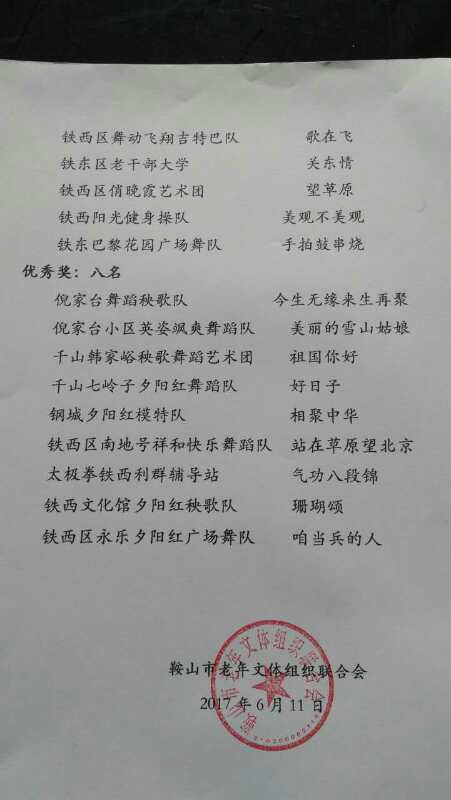 铁西区舞动飞翔吉特巴队 歌在飞
铁东区老干部大学 关东情
铁西区俏晚霞艺术团 望草原
铁西阳光健身操队 美观不美观
铁东巴黎花园广场舞队 手拍鼓串烧
优秀奖：八名
倪家台舞蹈秧歌队 今生无缘来生再聚
倪家台小区英姿飒爽舞蹈队 美丽的雪山姑娘
千山韩家峪秧歌舞蹈艺术团 祖国你好
千山七岭子夕阳红舞蹈队 好日子
钢城夕阳红模特队 相聚中华
铁西区南地号祥和快乐舞蹈队 站在草原望北京
太极拳铁西利群辅导站 气功八段锦
铁西文化馆夕阳红秧歌队 珊瑚颂
铁西区永乐夕阳红广场舞队 咱当兵的人
鞍山市老年文体组织联合会
鞍山市老年文体组织联合会
2017 年 6 月 11 日